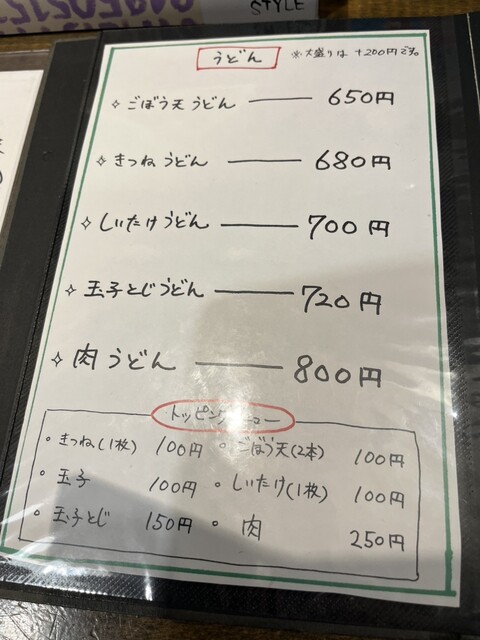 STYLE
うどん ※大盛りは +200円です。
✧ごぼう天うどん ― 650円
✧きつねうどん ― 680円
✧しいたけうどん ― 700円
✧玉子とじうどん ― 720円
✧肉うどん ― 800円
トッピングメニュー
・きつね(1枚) 100円 ・ごぼう天(2本) 100円
・玉子 100円 ・しいたけ(1枚) 100円
・玉子とじ 150円 ・肉 250円